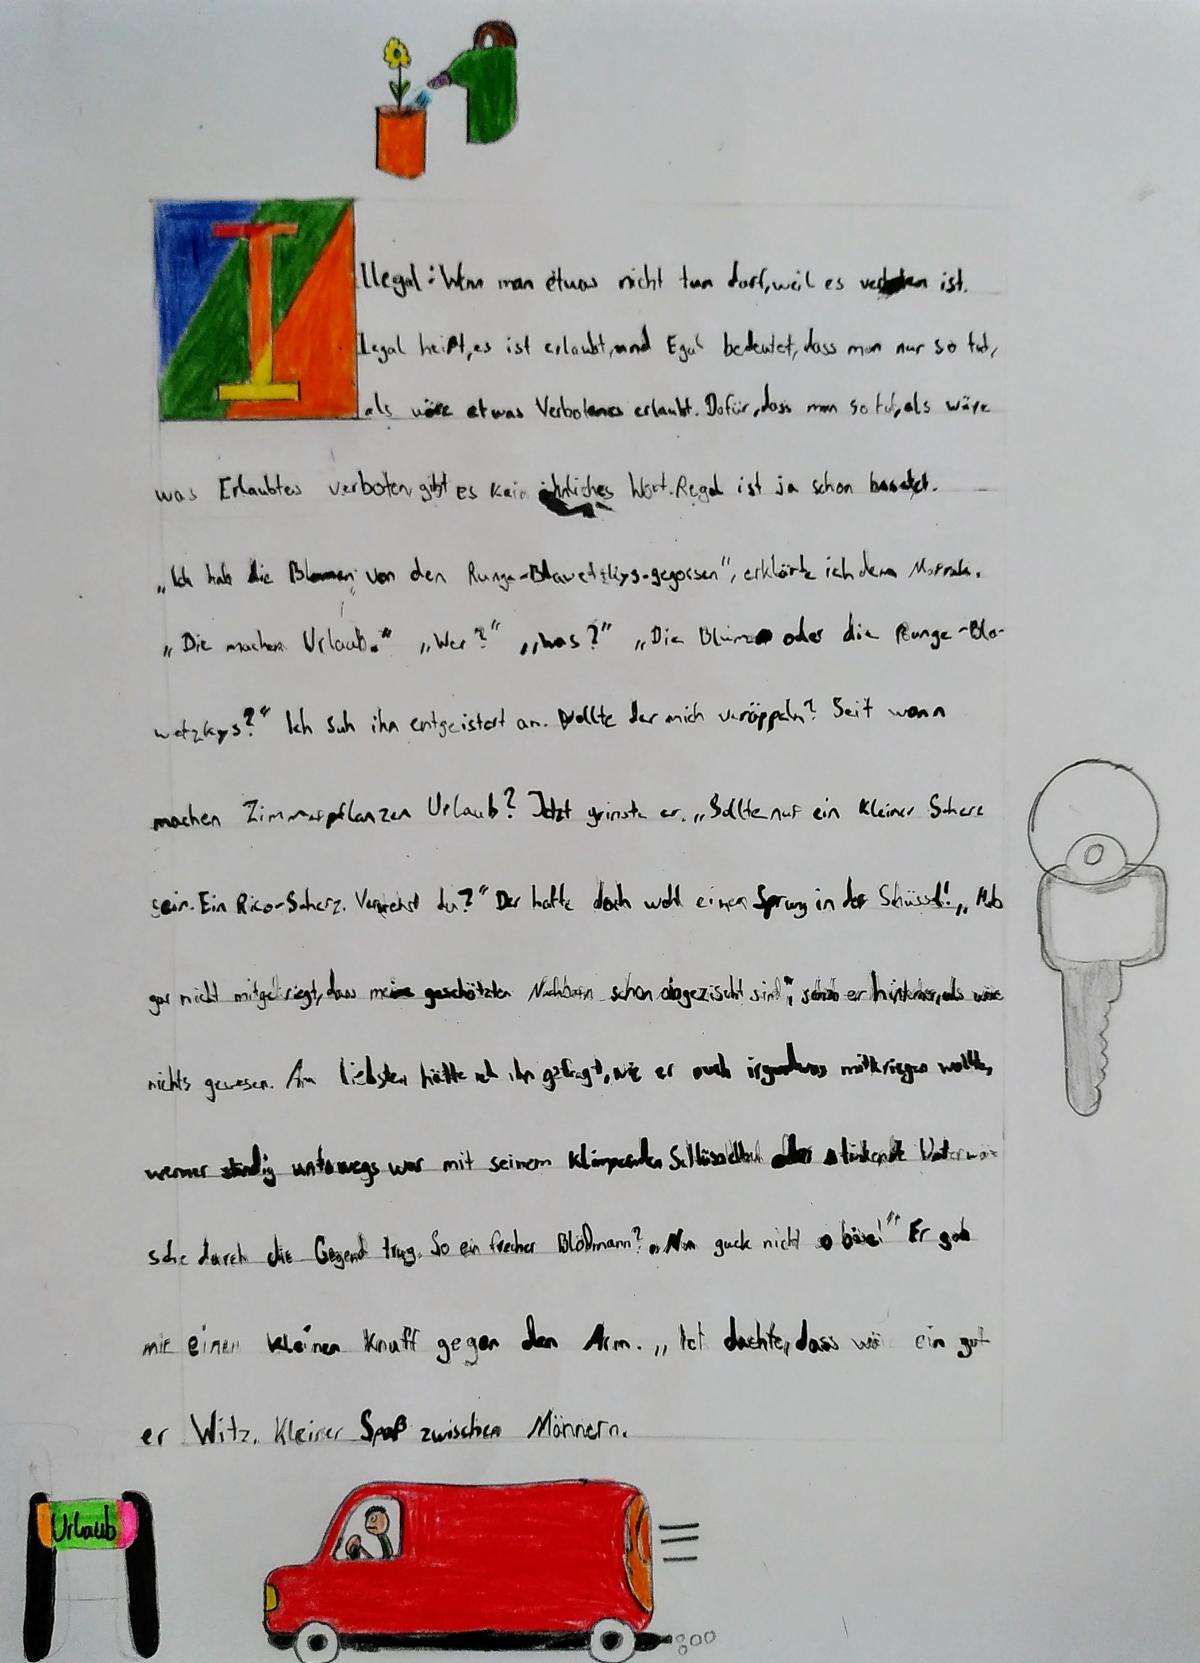 Illegal: Wenn man etwas nicht tun darf, weil es verboten ist.
Legal heißt, es ist erlaubt, und Egal bedeutet, dass man nur so tut,
als wäre etwas Verbotenes erlaubt. Dafür, dass man so tut, als wäre
was Erlaubtes verboten, gibt es kein ähnliches Wort. Regal ist ja schon besetzt.
„Ich hab die Blumen von den Runge-Blawetzkys gegossen", erklärte ich dem Marrak.
„Die machen Urlaub." „Wer?" „Was?" „Die Blumen oder die Runge-Bla-
wetzkys?" Ich sah ihn entgeistert an. Wollte der mich veräppeln? Seit wann
machen Zimmerpflanzen Urlaub? Jetzt grinste er. „Sollte nur ein kleiner Scherz
sein. Ein Rico-Scherz. Verstehst du?" Der hatte doch wohl einen Sprung in der Schüssel! „Hab
gar nicht mitgekriegt, dass meine geschätzten Nachbarn schon abgezischt sind", schob er hinterher, als wäre
nichts gewesen. Am liebsten hätte ich ihn gefragt, wie er auch irgendwas mitkriegen wollte,
wenner ständig unterwegs war mit seinem klimpernden Schlüsselbund oder stinkende Unterwä-
sche durch die Gegend trug. So ein frecher Blödmann? „Nun guck nicht so böse!" Er gab
mir einen kleinen Knuff gegen den Arm. „Ich dachte, dass wär ein gut
er Witz. Kleiner Spaß zwischen Männern.
Urlaub